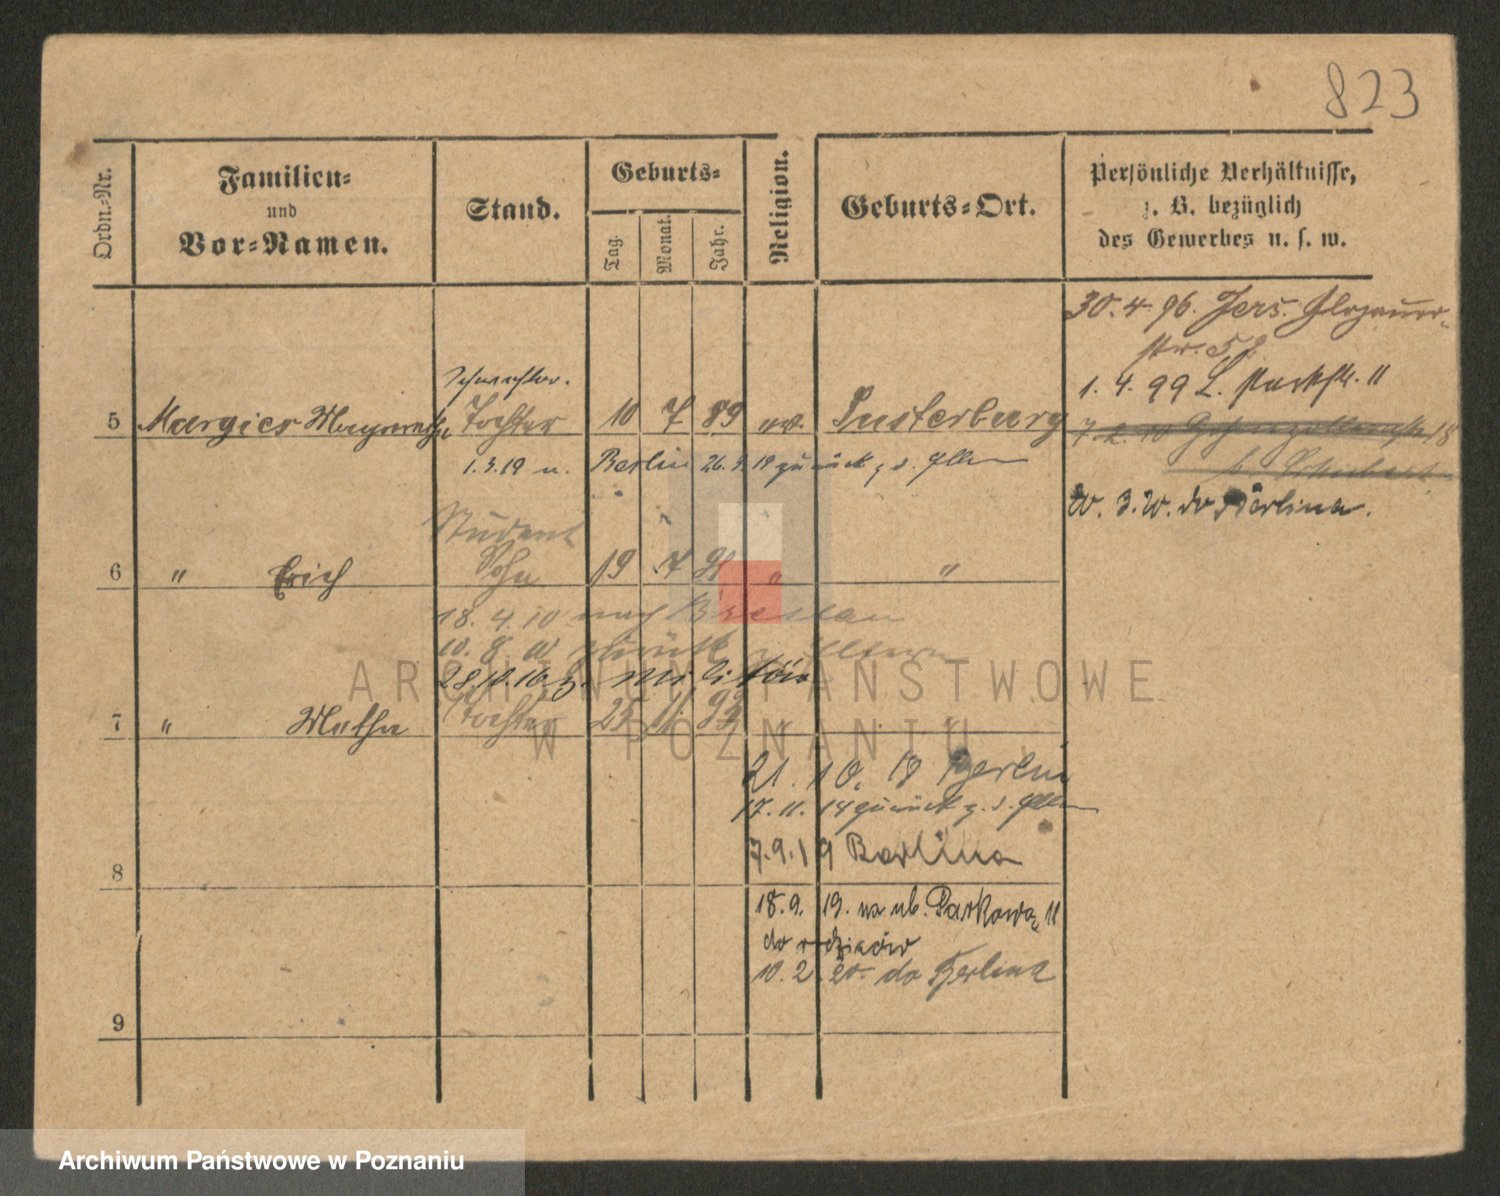 823
Ordn.-Nr.
Familien-
und
Vor-Namen.
Stand.
Geburts-
Tag.
Monat.
Jahr.
Religion.
Geburts-Ort.
Persönliche Verhältnisse,
z. B. bezüglich
des Gewerbes u. s. w.
30. 4. 96. Jers. Glogauer-
str.
1. 4. 99 L. Parkstr. 11
5 Margies Tochter 10 7 89 ev. Insterburg
1.3.19 n. Berlin 26. 9. 19 zurück z. d.
20. 3. 20. do Berlina.
Student
6 " Erich Sohn 19 7 91 " "
18. 4. 10 nach Breslau
10. 8. zurück z. Eltern
28. 10. 16 z. Militär
7 " Tochter 25 11 93 " "
21. 10. 13 Berlin
17. 11. 14 zurück z. d.
7. 9. 19 Berlina
8
18. 9. 19. na ul. Parkowa 11
do rodziców
10. 2. 20. do Berlina
9
ARCHIWUM PAŃSTWOWE
W POZNANIU
Archiwum Państwowe w Poznaniu